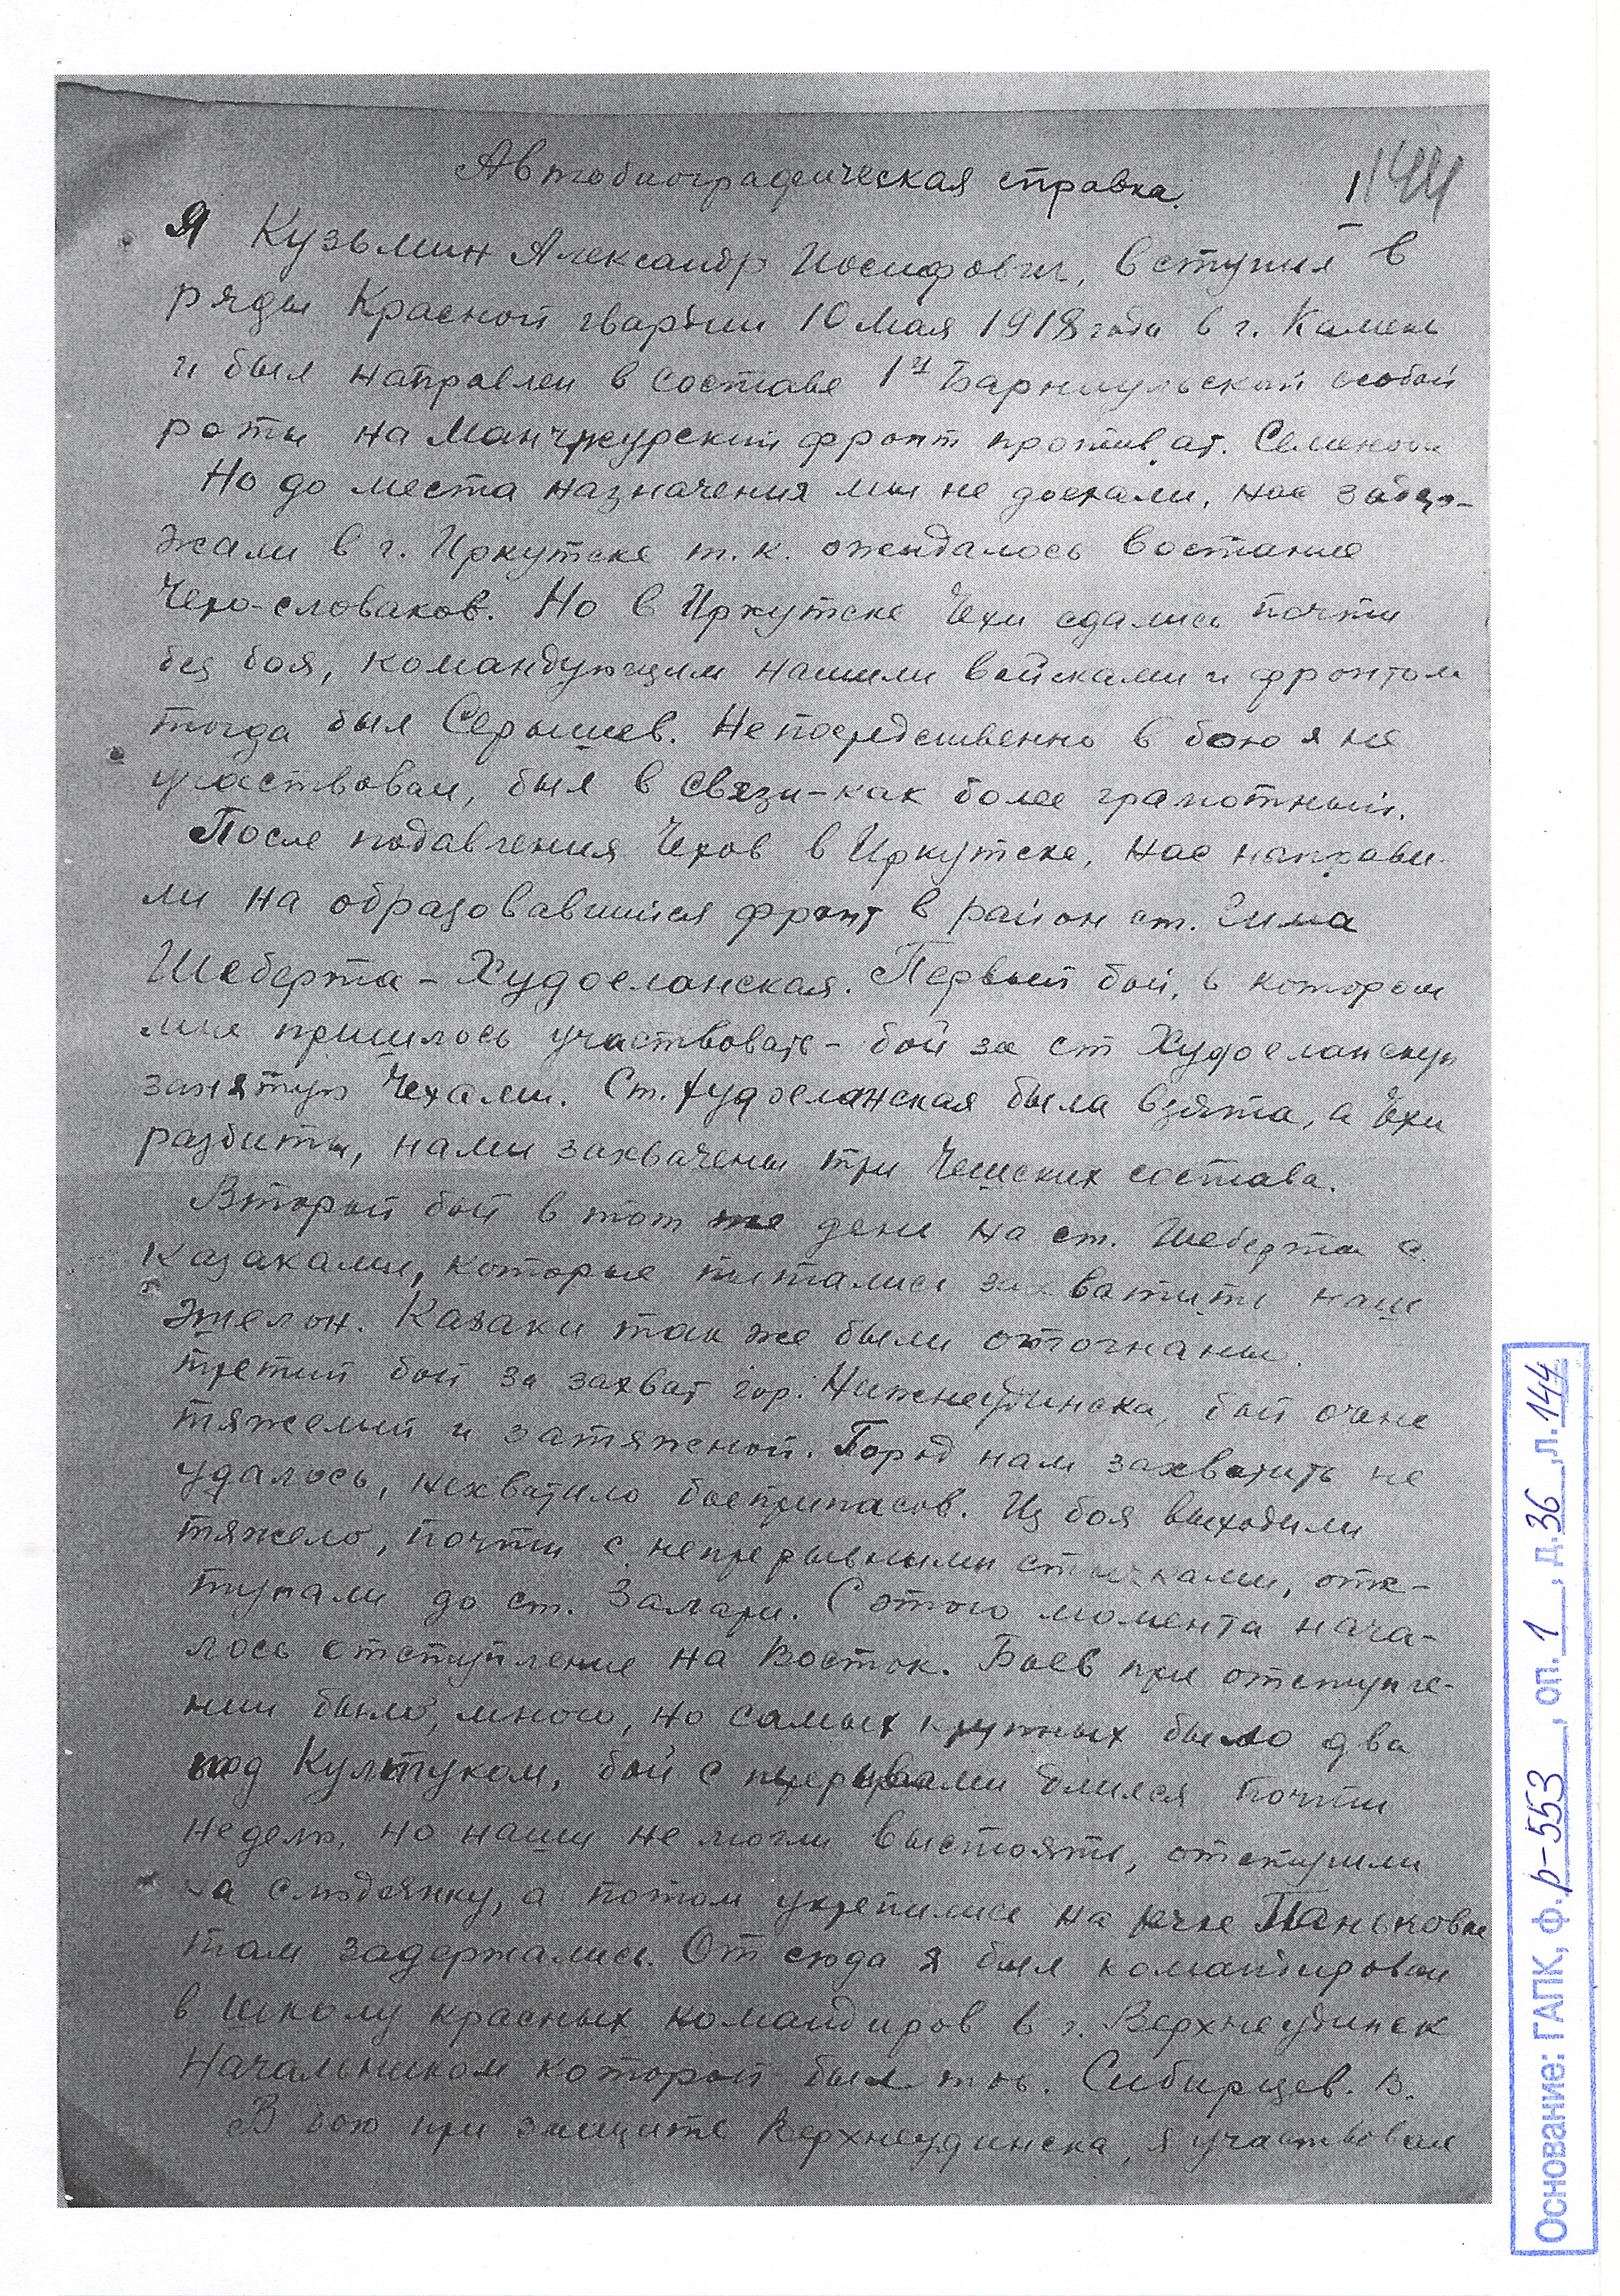 Автобиографическая справка.
1 144
Я Кузьмин Александр Иосифович, вступил в
ряды Красной гвардии 10 мая 1918 года в г. Камень
и был направлен в составе 1й Барнаульской особой
роты на Манчжурский фронт против ат. Семенова
Но до места назначения мы не доехали, нас задер-
жали в г. Иркутске т.к. ожидалось востание
Чехо-словаков. Но в Иркутске Чехи сдались почти
без боя, командующим нашими войсками и фронтом
тогда был Серышев. Непосредственно в бою я не
участвовал, был в связи-как более грамотный.
После подавления Чехов в Иркутске, нас направи-
ли на образовавшийся фронт в район ст. Зима
Шеберта - Худоеланская. Первый бой, в котором
мне пришлось участвовать - бой за ст Худоеланскую
занятую Чехами. Ст. Худоеланская была взята, а Чехи
разбиты, нами захвачены три Чешских состава.
Второй бой в тот же день на ст. Шеберта с
Казаками, которые пытались захватить наш
эшелон. Казаки так же были отогнаны.
третий бой за захват гор. Нижнеудинска, бой очень
тяжелый и затяжной. Город нам захватить не
удалось, нехватило боеприпасов. Из боя выходили
тяжело, почти с непрерывными стычками, отс-
тупали до ст. Залари. С этого момента нача-
лось отступление на Восток. Боев при отступле-
нии было, много, но самых крупных было два
под Култуком, бой с перерывами длился почти
неделю, но наши не могли выстоять, отступили
за Слюдянку, а потом укрепились на речке Паньковке
там задержались. От сюда я был командирован
в школу красных командиров в г. Верхнеудинск
Начальником которой был тов. Сибирцев. В.
В бою при защите Верхнеудинска, я участвовал
Основание: ГАПК, ф. р-553, оп. 1, д. 36, л. 144